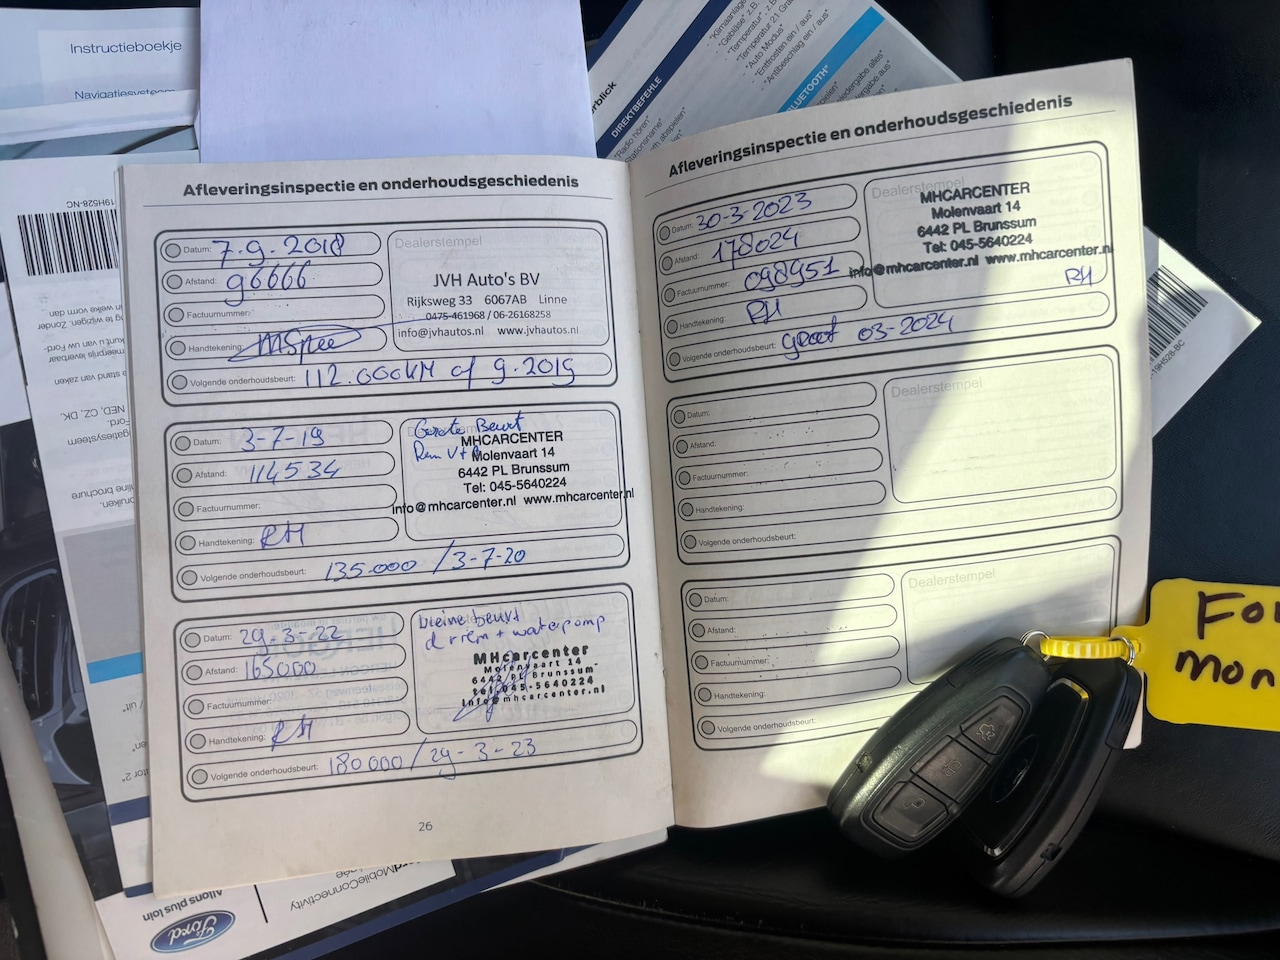 Instructieboekje
Navigatiesysteem
19H528-NC
DIREKTBEFEHLE
"Radio hören"
"Temperatur"
"Auto Modus"
"Entfrosten ein / aus"
"Antibeschlag ein / aus"
BLUETOOTH
Afleveringsinspectie en onderhoudsgeschiedenis
Datum: 7-9-2018
Dealerstempel
Afstand: 96666
JVH Auto's BV
Rijksweg 33 6067AB Linne
Factuurnummer:
0475-461968 / 06-26168258
info@jvhautos.nl www.jvhautos.nl
Handtekening:
Volgende onderhoudsbeurt: 112.000KM of 9-2019
Datum: 3-7-19
Grote Beurt
Rem V+A
MHCARCENTER
Molenvaart 14
6442 PL Brunssum
Tel: 045-5640224
info@mhcarcenter.nl www.mhcarcenter.nl
Afstand: 114534
Factuurnummer:
Handtekening: RH
Volgende onderhoudsbeurt: 135.000 / 3-7-20
Datum: 29-3-22
kleine beurt
d riem + waterpomp
MHcarcenter
Molenvaart 14
6442 PL Brunssum
tel: 045-5640224
info@mhcarcenter.nl
Afstand: 165000
Factuurnummer:
Handtekening: RH
Volgende onderhoudsbeurt: 180 000 / 29-3-23
26
Afleveringsinspectie en onderhoudsgeschiedenis
Datum: 30-3-2023
Dealerstempel
MHCARCENTER
Molenvaart 14
6442 PL Brunssum
Tel: 045-5640224
info@mhcarcenter.nl www.mhcarcenter.nl
Afstand: 178024
Factuurnummer: 098951
RH
Handtekening: RH
Volgende onderhoudsbeurt: groot 03-2024
Datum:
Dealerstempel
Afstand:
Factuurnummer:
Handtekening:
Volgende onderhoudsbeurt:
Datum:
Dealerstempel
Afstand:
Factuurnummer:
Handtekening:
Volgende onderhoudsbeurt:
19H528-BC
Allons plus loin
Ford
MobileConnectivity